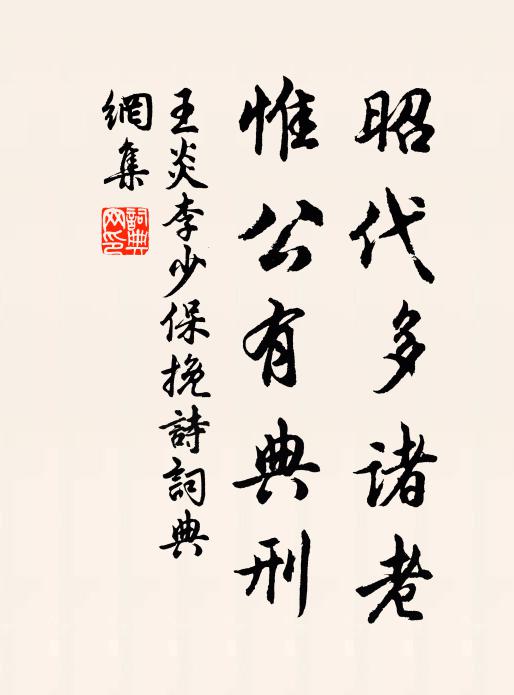 昭代多诸老
惟公有典刑
王炎李少保挽詩詞典
網集
詞典
网印